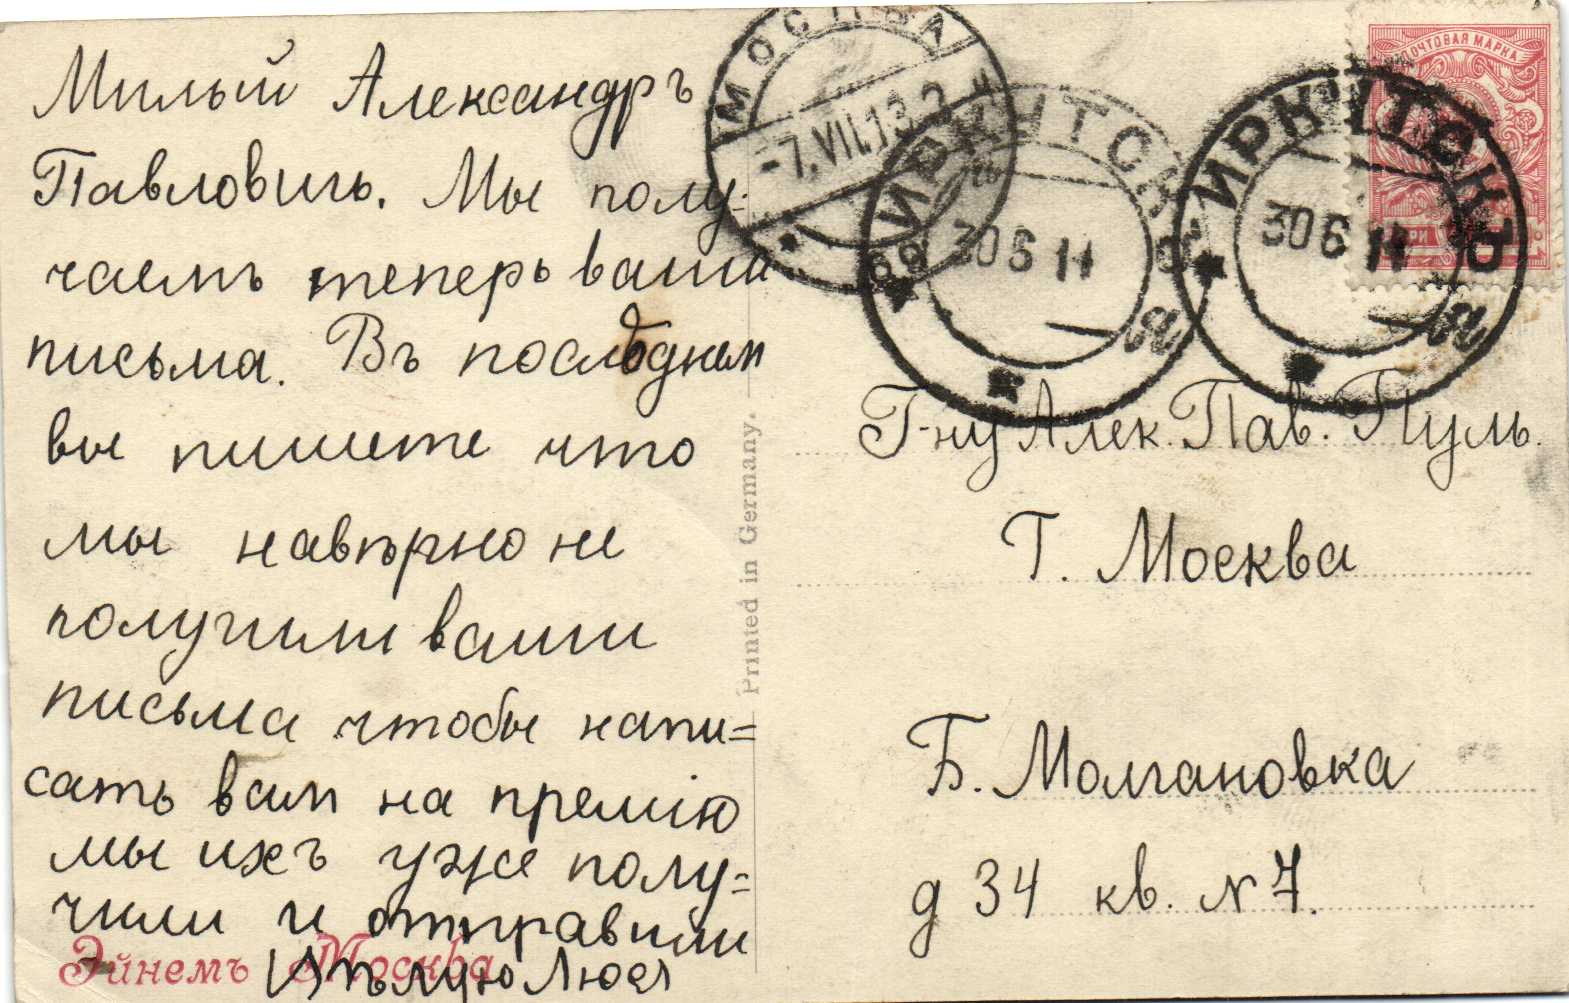 Милый Александръ
Павловичъ. Мы полу-
чаемъ теперь ваши
письма. Въ последнем
вы пишете что
мы навѣрно не
получили ваши
письма чтобы напи=
сать вам на премію
мы ихъ уже полу=
чили и отправили
Цѣлую Люся
Эйнемъ Москва
Printed in Germany.
МОСКВА
-7.VII.13.
ИРКУТСКЪ
30 6 14
ИРКУТСКЪ
30 6 14
ПОЧТОВАЯ МАРКА
Г-ну Алек. Пав. Пуль.
Г. Москва
Б. Молчановка
д 34 кв. N 7.